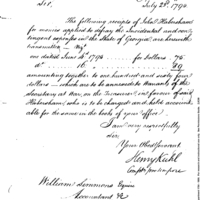 July 28th 1794
Sir,
The following receipts of John Habersham
for monies applied to defray the Incidental and con-
tingent expences in the State of Georgia, are herewith
transmitted — Viz
one dated June 14th 1794 — for Dollars 75
do 16 do 29
amounting together to one hundred and four
dollars — which are to be transmitted to the Secretary
at War, on the Treasurer, in favour of said
Habersham, who is to be charged and held account-
able for the same in the books of your office.
I am very respectfully
Sir,
Your Obed Servant
Henry Kuhl
Comptr pro tempore
William Simmons Esquire
Accountant &c